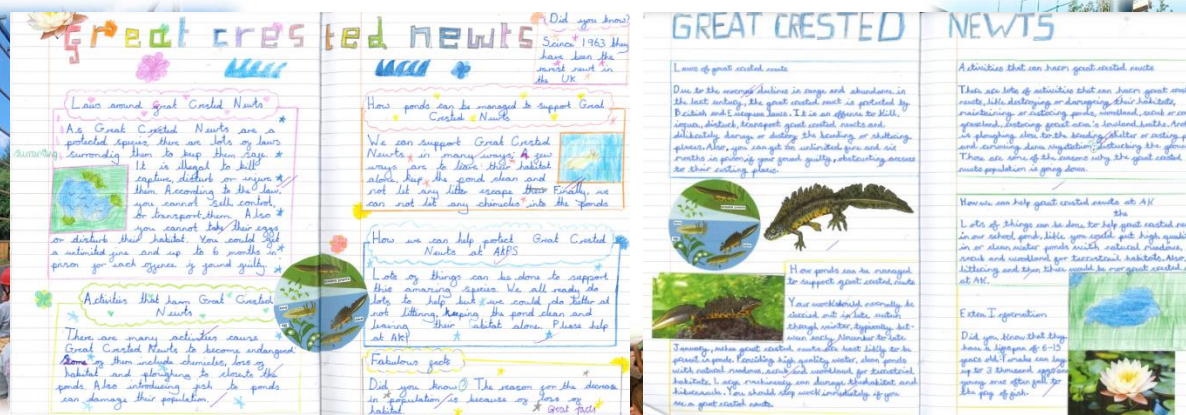 Great crested newts
Did you know?
Scince 1963 they
have been the
rarest newt in
the UK
Laws around Great Crested Newts
As Great Crested Newts are a
protected species, there are lots of laws
surrounding surrondig them to keep them safe.
It is illegal to kill,
capture, disturb or injure
them. According to the law,
you cannot sell, control,
or transport them. Also
you cannot take their eggs
or disturb their habitat. You could get
a unlimited fine and up to 6 months in
prison for each offence is found guilty.
Activities that harm Great Crested
Newts
There are many activities cause
Great Crested Newts to become endangered.
Some of them include chimicles, loss of
habitat and ploughing to closets the
ponds. Also introducing fish to ponds
can damage their population.
How ponds can be managed to support Great
Crested Newts
We can support Great Crested
Newts in many ways. A few
ways are to leave their habitat
alone, keep the pond clean and
not let any litter escape their. Finally, we
can not let any chimicles into the ponds
How we can help protect Great Crested
Newts at AKPS
Lots of things can be done to support
this amazing species. We all ready do
lots to help but we could do better at
not littering, keeping the pond clean and
leaving their habitat alone. Please help
at AKP
Fabulous facts
Did you know? The reason for the decrease
in population is because of loss of
habitat.
Great facts
GREAT CRESTED NEWTS
Laws of great crested newts
Due to the decline in range and abundance in
the last century, the great crested newt is protected by
British and European laws. It is an offence to kill,
injure, disturb, transport great crested newts and
delibately damage or destroy the breeding or sheltering
places. Also, you can get an unlimited fine and six
months in prison if your found guilty, obstructing access
to their resting places.
How ponds can be managed
to support great crested newts
Your work should normally be
carried out in late autumn
through winter, typically bet-
ween early November to late
January, when great crested newts are least likely to be
present in ponds. Providing high quality water, clean ponds
with natural meadows, scrub and woodland for terrestrial
habitats. Large machinery can damage the habitat and
hibernacula. You should stop work immediately if you
see a great crested newt.
Activities that can harm great crested newts
There are lots of activities that can harm great
newts, like destroying or damaging their habitats,
maintaining or restoring ponds, woodland, scrub or
grassland, restoring great area's lowland heaths. And
is ploughing close to the breeding shelter or resting
and removing dense vegetation; disturbing the ground
These are some of the reasons why the great crested
newts population is going down.
How we can help great crested newts at AK
the
Lots of things can be done to help great crested
in our school pond, like you could put high quality
in or clean water ponds with natural meadows,
scrub and woodland for terrestrial habitats. Also,
littering and then there would be more great crested
at AK.
Extra Information
Did you know that they
have a lifespan of 6-15
years old. Females can lay
up to 3 thousand eggs
young ones often fall to
the prey of fish.